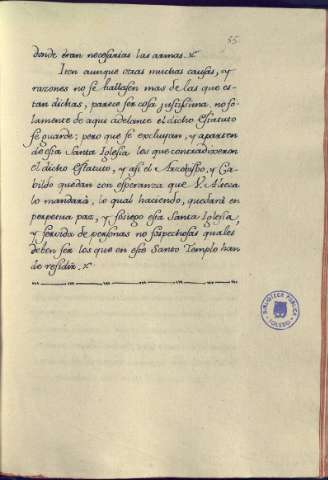 55
donde eran necesarias las armas.
Iten aunque otras muchas causas, y
razones no se hallasen mas de las que es-
tan dichas, parece ser cosa justissima, no so-
lamente de aqui adelante el dicho Estatuto
se guarde; pero que se excluyan, y aparten
de esta Santa Iglesia los que contradixeron
el dicho estatuto, y asi el Arzobispo, y Ca-
bildo quedan con esperanza que V. Alteza
lo mandará, lo qual haciendo, quedará en
perpetua paz, y sosiego esta Santa Iglesia,
y servida de personas no sospechosas quales
deben ser los que en este Santo Templo han
de residir.
BIBLIOTECA PUBLICA
TOLEDO